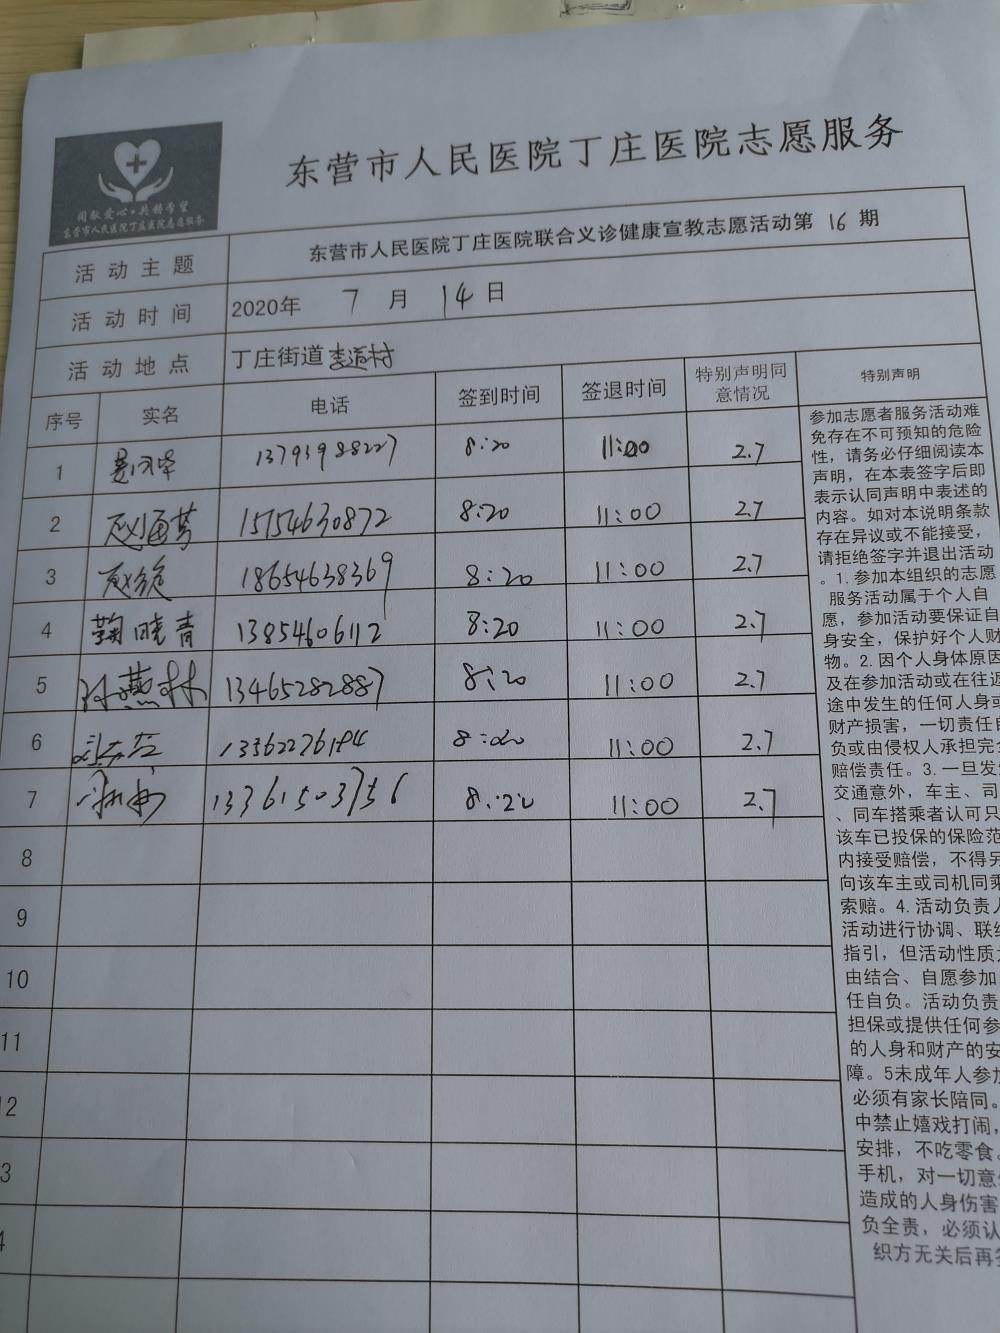 同献爱心·共铸希望
东营市人民医院丁庄医院志愿服务
东营市人民医院丁庄医院志愿服务
活动主题 东营市人民医院丁庄医院联合义诊健康宣教志愿活动第 16 期
活动时间 2020年 7 月 14 日
活动地点 丁庄街道 村
序号 实名 电话 签到时间 签退时间 特别声明同意情况 特别声明
1 13793988227 8:20 11:00 2.7
2 赵 15154630872 8:20 11:00 2.7
3 赵 18654638369 8:20 11:00 2.7
4 鞠晓青 13854606112 8:20 11:00 2.7
5 燕林 13465282887 8:20 11:00 2.7
6 8:20 11:00 2.7
7 13361503756 8:20 11:00 2.7
8
9
10
11
12
3
4
参加志愿者服务活动难
免存在不可预知的危险
性，请务必仔细阅读本
声明，在本表签字后即
表示认同声明中表述的
内容。如对本说明条款
存在异议或不能接受，
请拒绝签字并退出活动
。1.参加本组织的志愿
服务活动属于个人自
愿，参加活动要保证自
身安全，保护好个人财
物。2.因个人身体原因
及在参加活动或在往返
途中发生的任何人身或
财产损害，一切责任自
负或由侵权人承担完全
赔偿责任。3.一旦发生
交通意外，车主、司
、同车搭乘者认可只
该车已投保的保险范
内接受赔偿，不得另
向该车主或司机同乘
索赔。4.活动负责人
活动进行协调、联络
指引，但活动性质为
由结合、自愿参加
任自负。活动负责
担保或提供任何参
的人身和财产的安
障。5未成年人参加
必须有家长陪同。
中禁止嬉戏打闹，
安排，不吃零食。
手机，对一切意外
造成的人身伤害
负全责，必须认
织方无关后再签